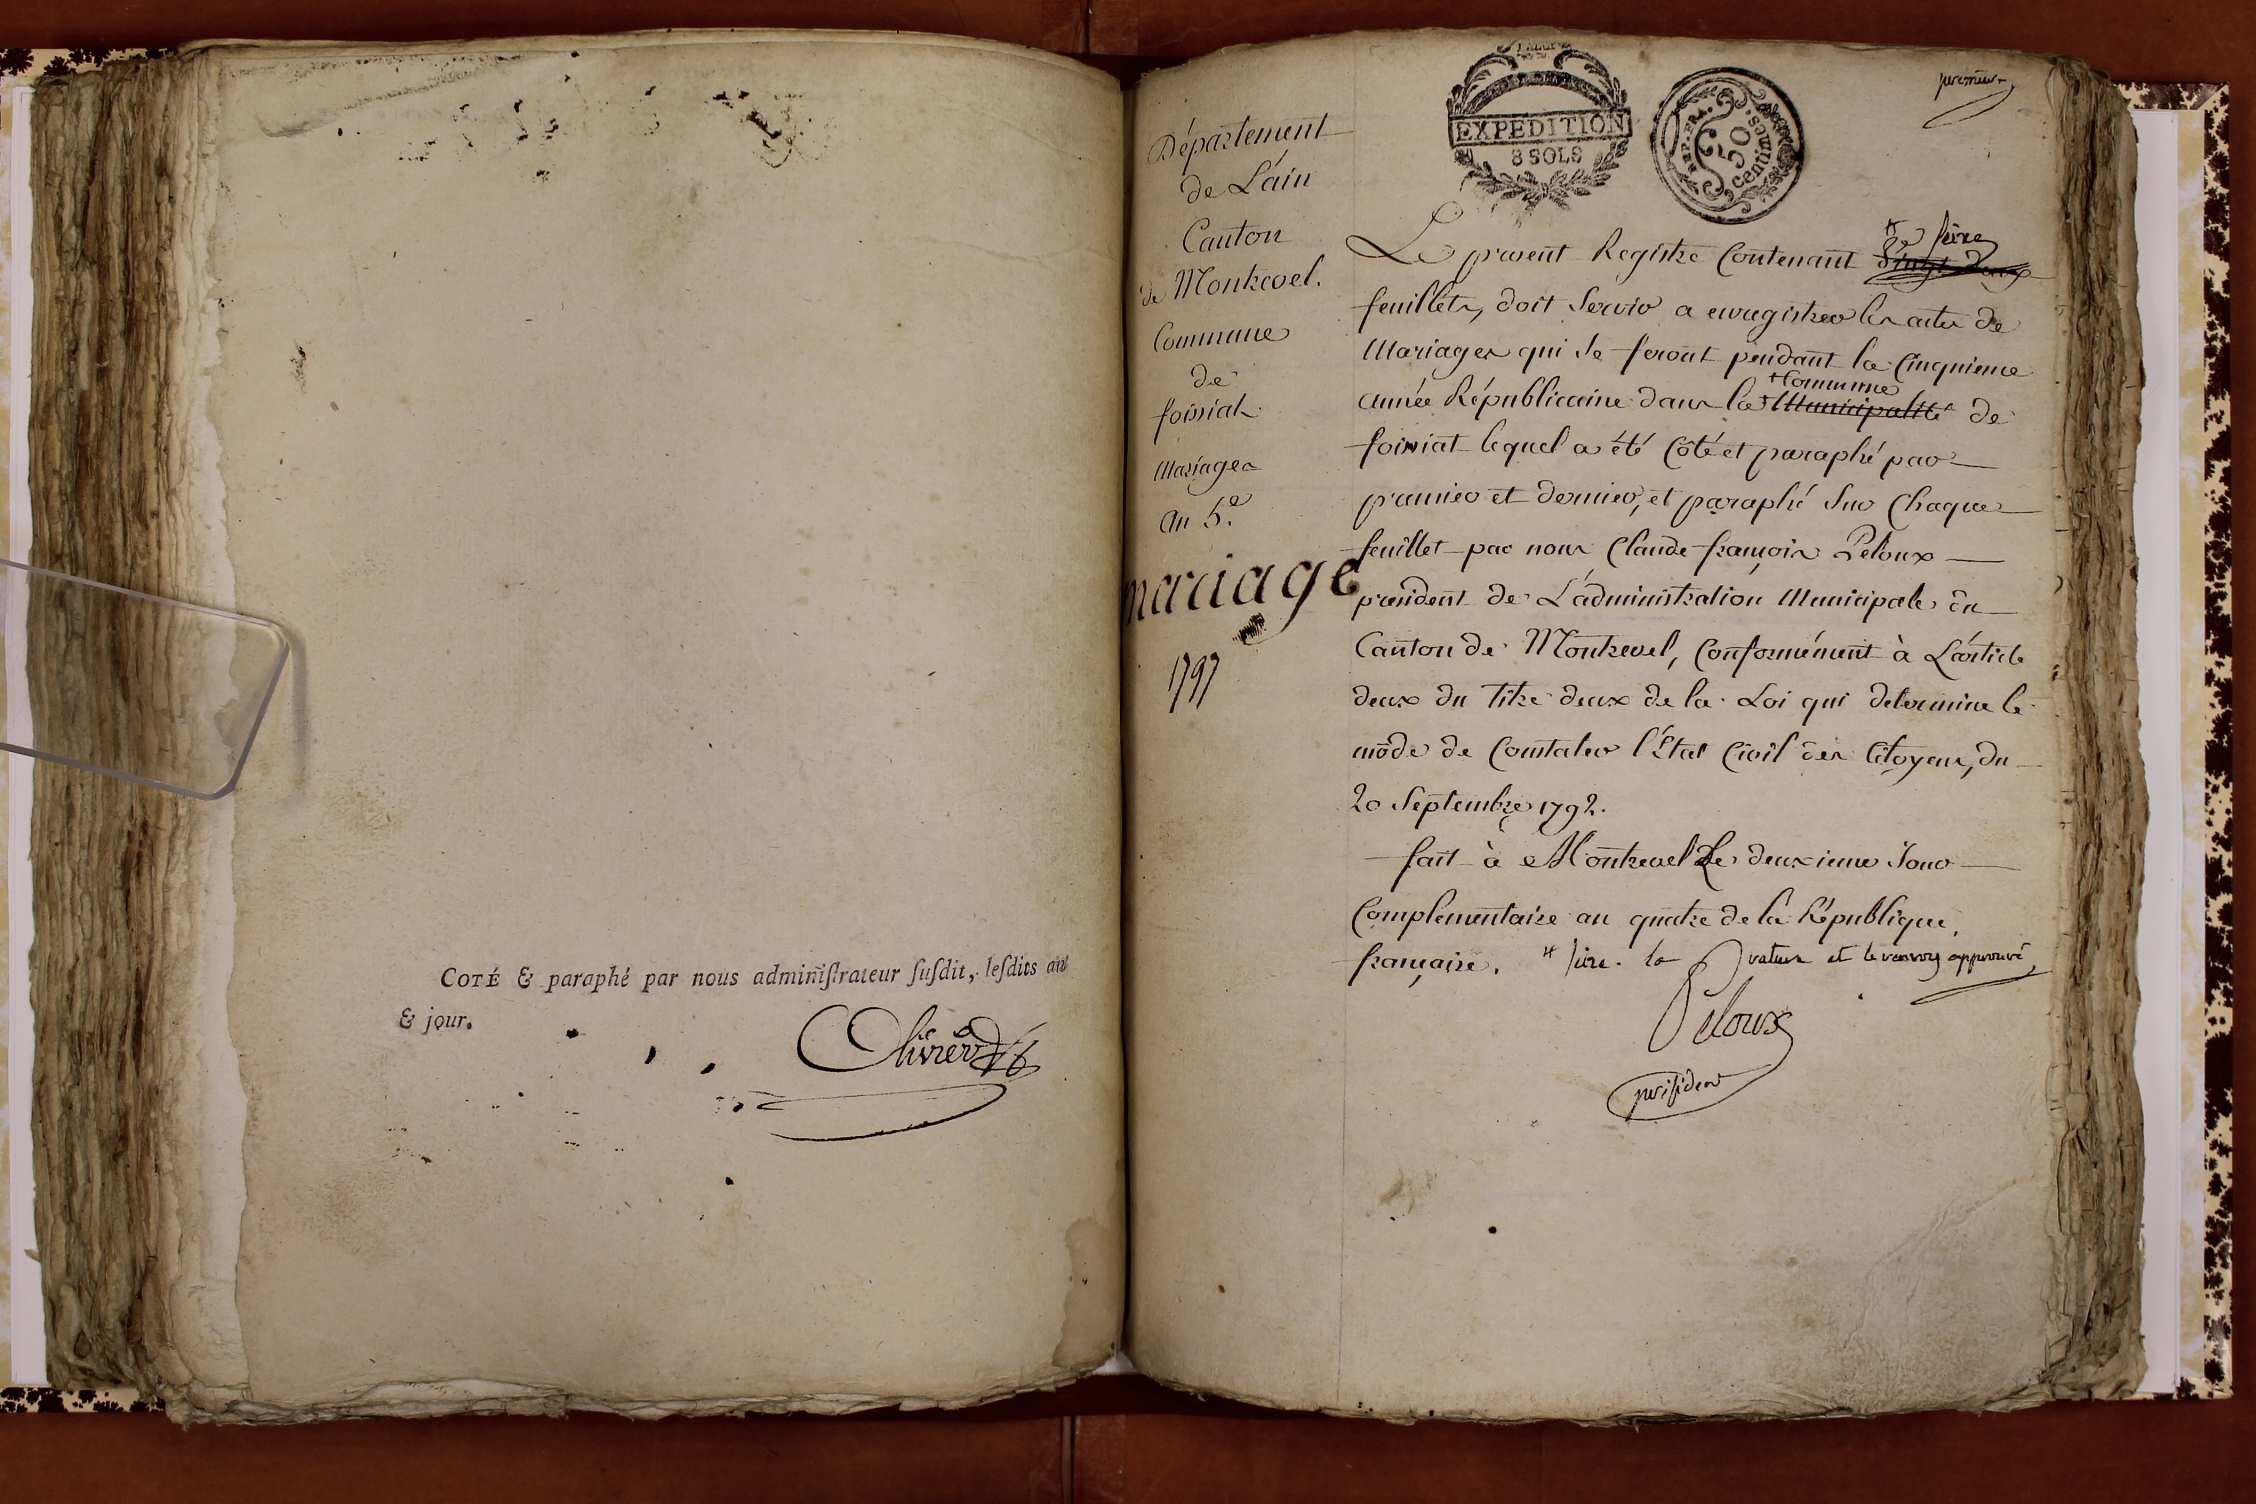 COTÉ & paraphé par nous adminiſtrateur ſuſdit, leſdits an
& jour.
Olivier
premier
EXPÉDITION
8 SOLS
REP. FRA.
50
centimes.
Département
de L'ain
Canton
de Montrevel.
Commune
de
foissiat
Mariages
an 5.e
mariage
1797
Le présent Registre Contenant vingt deux
seize
feuillets, doit Servir a enregistrer les actes de
Mariages qui Se feront pendant la Cinquieme
Commune
année Républicaine dans la Municipalité de
foissiat lequel a été Côté et paraphé par
premier et dernier, et paraphé Sur Chaque
feuillet par nous Claude françois Peloux
président de L'administration Municipale du
Canton de Montrevel, Conformément à L'article
deux du titre deux de la Loi qui determine le
mode de Constater l'État Civil des Citoyens, du
20 Septembre 1792.
fait à Montrevel Le deuxieme Jour
Complementaire an quatre de la République
française. seize. la rature et le renvoy approuvé
Peloux
président